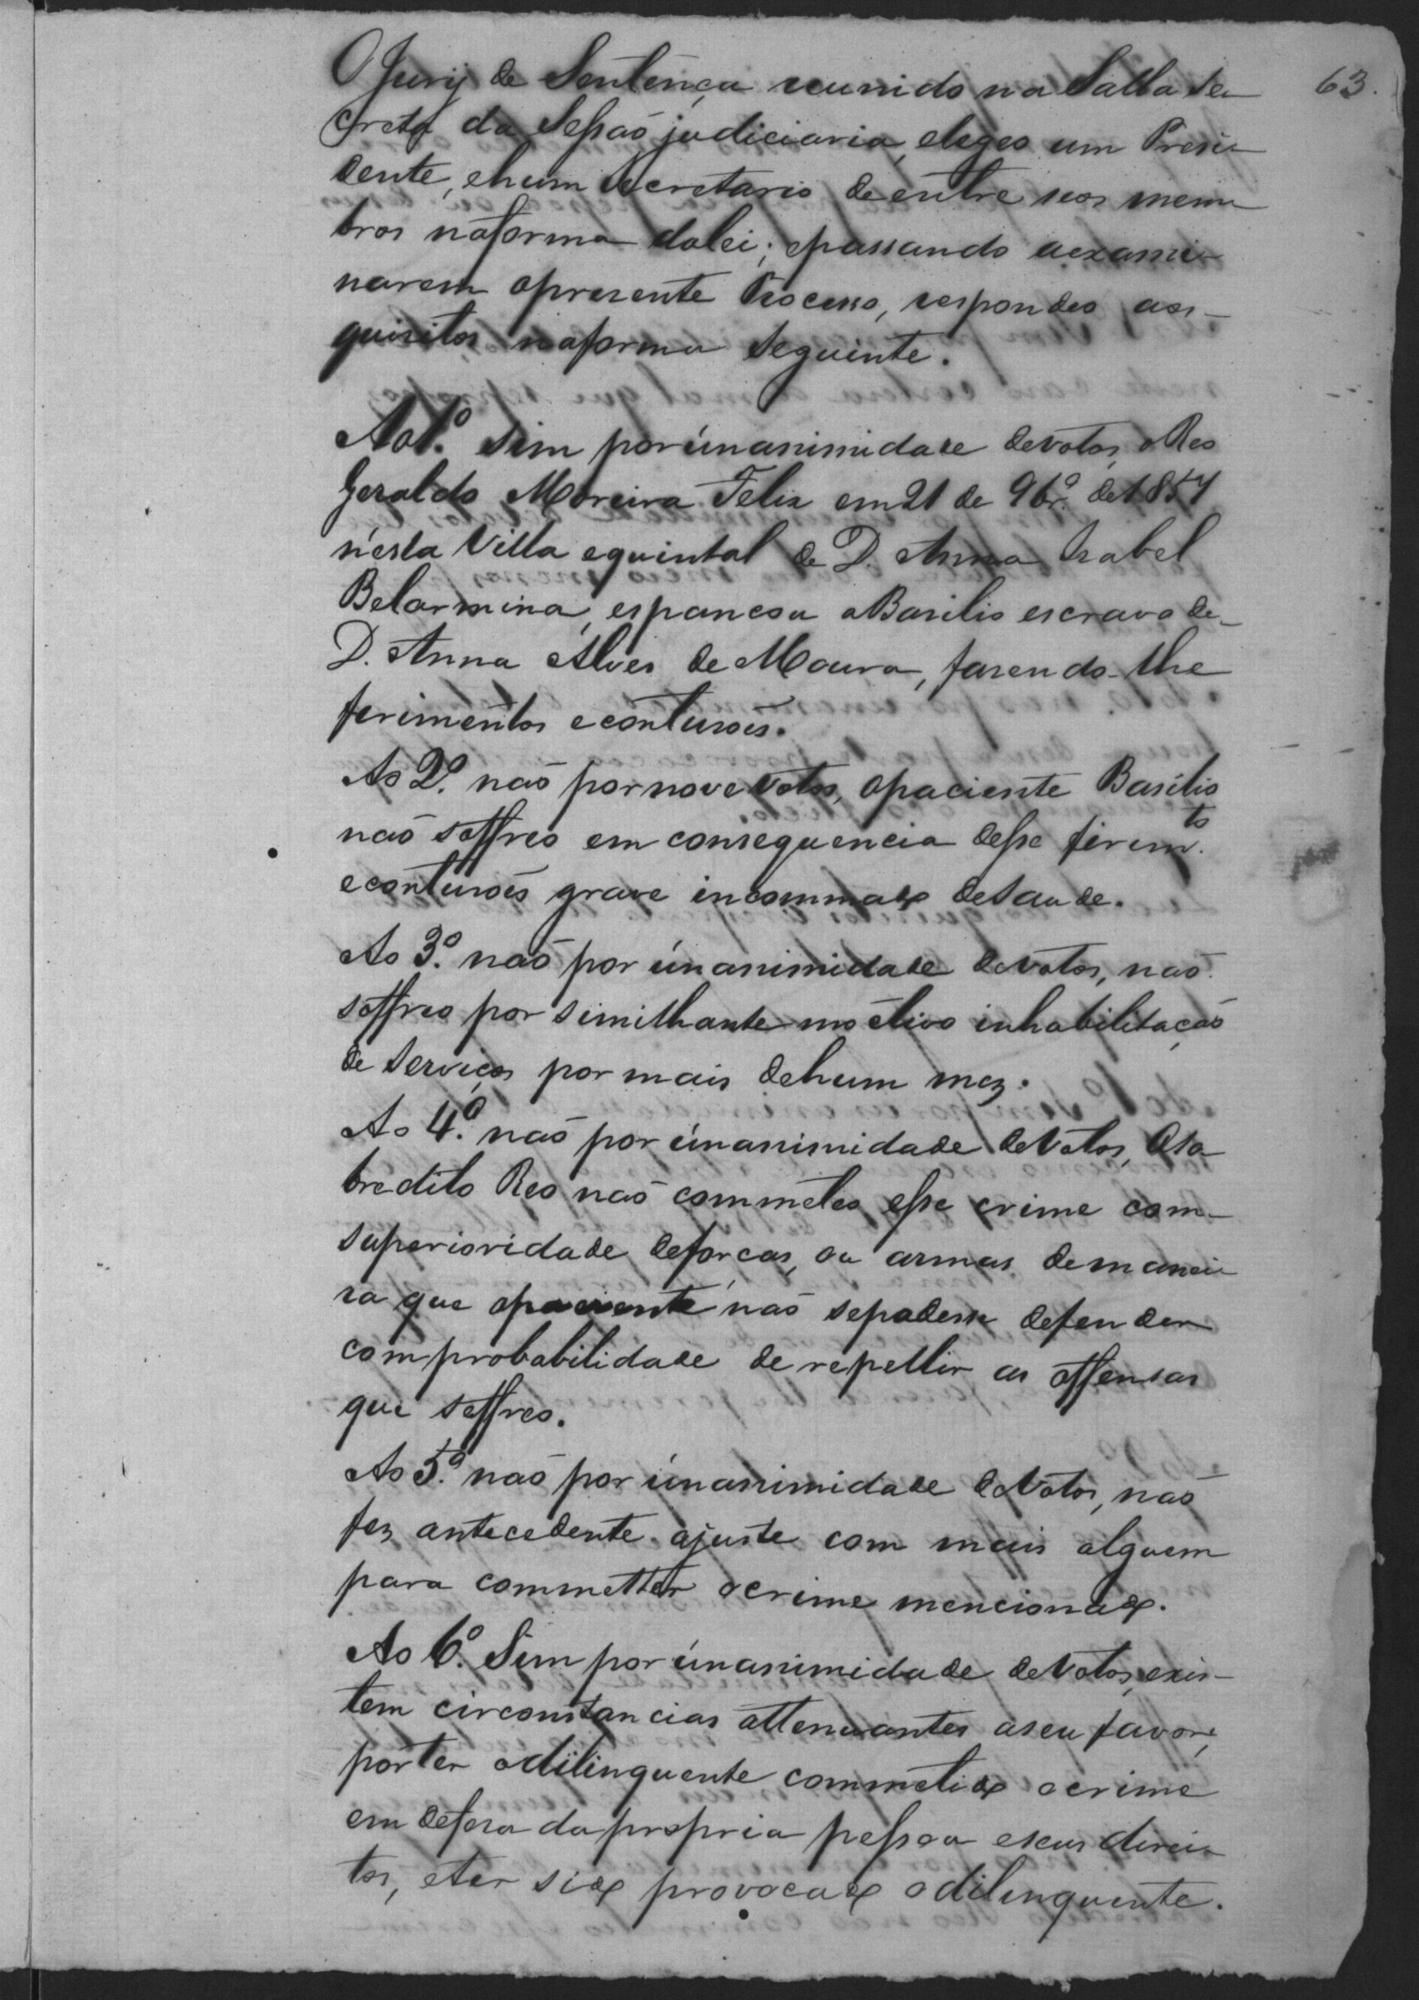 63.
O Jury de Sentença reunido na Salla Se
creta da Sessaõ judiciaria, elegeo um Presi
dente, e hum Secretario de entre seos mem
bros na forma da lei; e passando a exami-
narem o presente Processo, respondeo aos
quisitos na forma seguinte.
Ao 1.º Sim por únanimidade de votos, o Reo
Geraldo Moreira Felix em 21 de 9br.º de 1857
n'esta Villa e quintal de D. Anna Izabel
Belarmina, espancou a Basilio escravo de
D. Anna Alves de Moura, fasendo-lhe
ferimentos e contusoẽs.
Ao 2.º naõ por nove votos, o paciente Basilio
naõ soffreo em consequencia desse ferim.tos
e contusoẽs grave incommodo de saude.
Ao 3.º naõ por únanimidade de votos, naõ
soffreo por similhante motivo inhabilitaçaõ
de serviços por mais de hum mez.
Ao 4.º naõ por únanimidade de Votos, O so
bredito Reo naõ commeteo esse crime com
superioridade de forcas, ou armas de manei
ra que o paciente naõ se podesse defender
com probabilidade de repellir as offensas
que soffreo.
Ao 5.º naõ por únanimidade de Votos, naõ
fez antecedente ajuste com mais alguem
para commetter o crime mencionado.
Ao 6.º Sim por únanimidade de Votos, exis-
tem circonstancias attenuantes a seu favor,
por ter o dilinquente commetido o crime
em defesa da propria pessoa e seus direi
tos, e ter sido provocado o dilinquente.